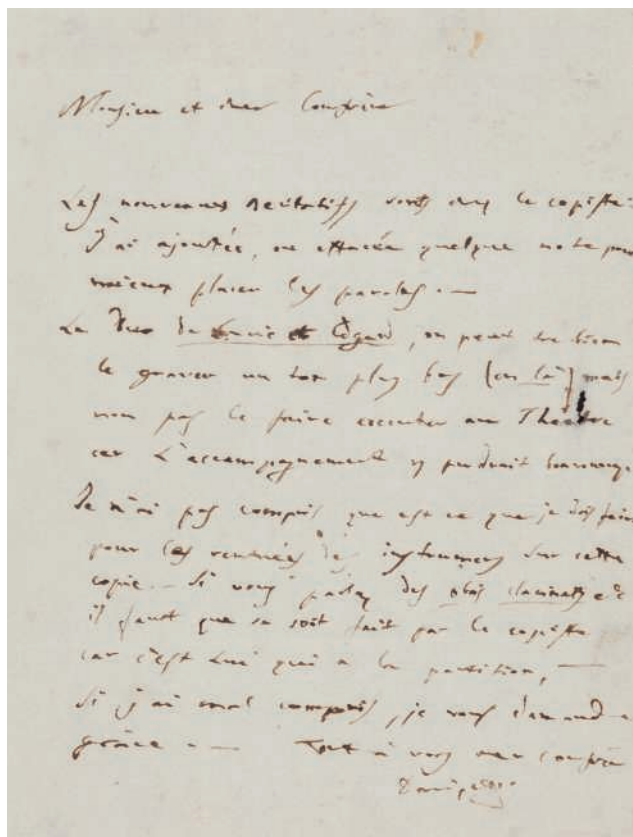 Monsieur et cher Confrère
Les nouveaux Recitatifs sont chez le copiste.
J'ai ajoutée, ou effacée quelque note pour
mieux placer les paroles. —
Le Duo de Lucie et Edgard, on peut tre bien
le graver un ton plus bas (en la) mais
non pas le faire executer au Théatre
car l'accompagnement y perdrait beaucoup.
Je n'ai pas compris que est ce que je dois faire
pour les rentrées des instrumens sur cette
copie. — Si vous parlez des obois clarinetts etc
il faut que sa soit fait par le copiste
car c'est lui qui a la partition, —
Si j'ai mal compris, je vous demande
grace — Tout à vous cher confrère
Donizetti